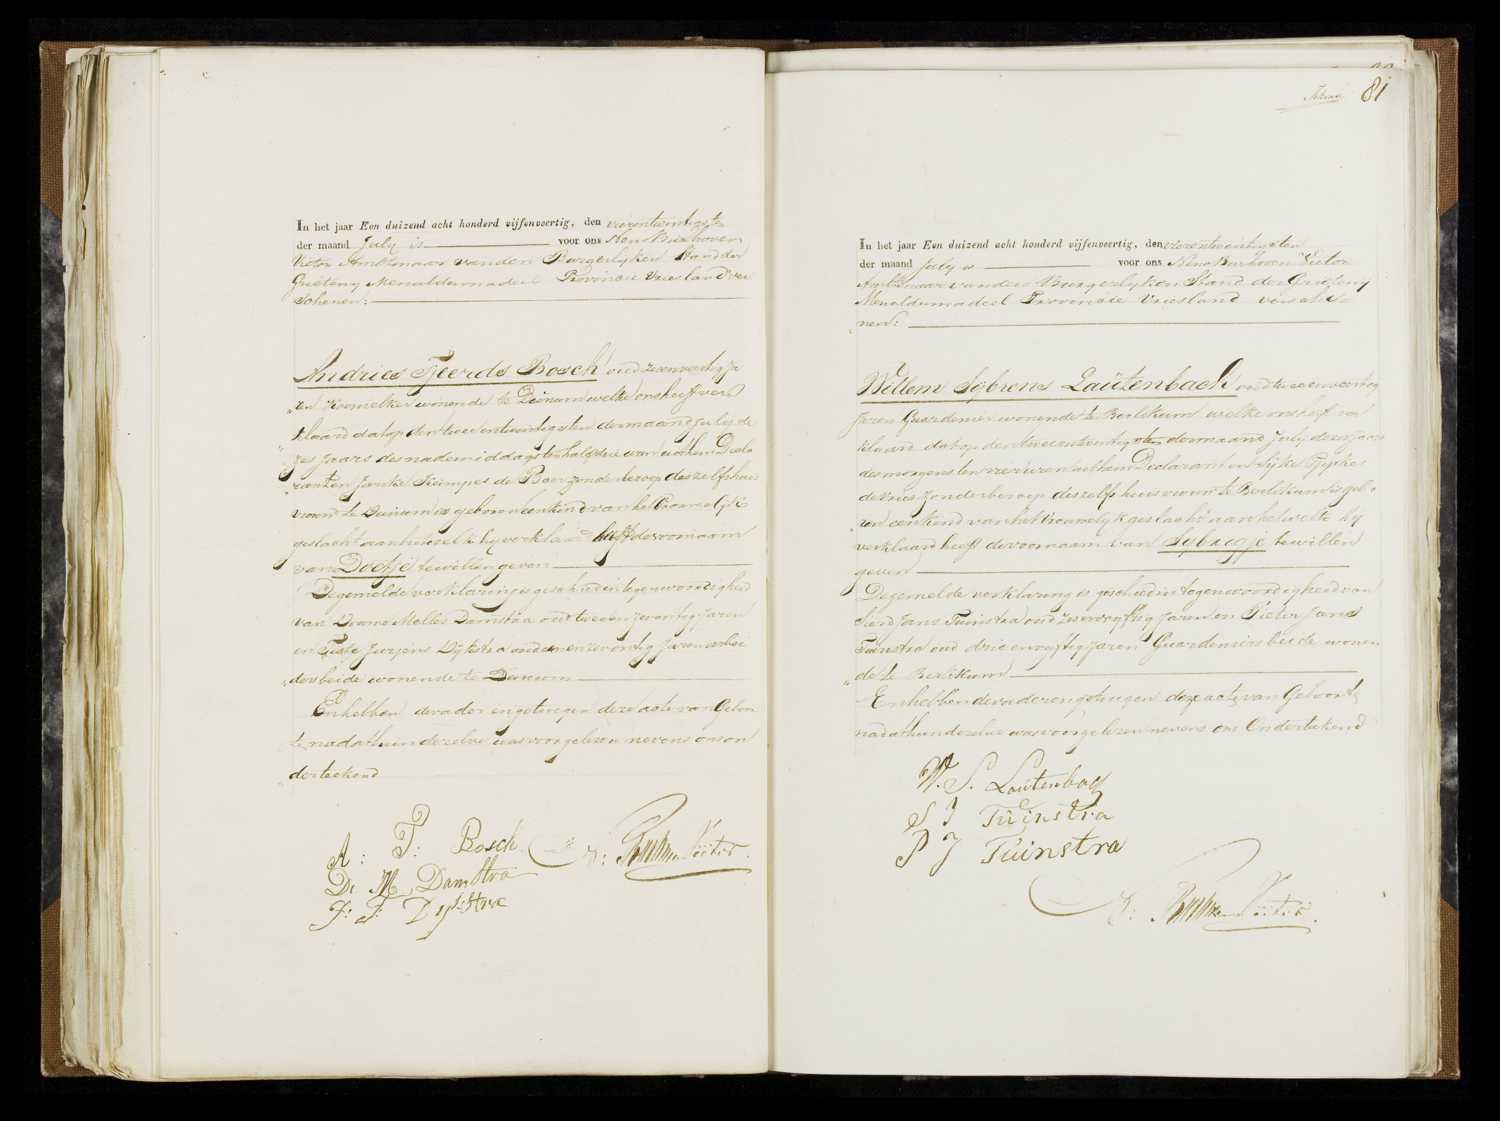 In het jaar Een duizend acht honderd vijfenveertig, den vierentwintigste
der maand July is voor ons Nem Buxhoven
Victor Ambtenaar van den Burgerlyken Stand der
Grieteny Menaldumadeel Provincie Vriesland ver
schenen:
Andries Tjeerds Bosch oud zevenveertig ja
ren Koemelker wonende te Deinum welke ons heeft ver
klaard dat op den tweeentwintigsten der maand July de
zes jaars des nademiddags ten half drie uren uit hem Decla
rant en Janke Keimpes de Boer zonder beroep deszelfs huis
vrouw te Deinum is geboren een kind van het Vrouwelijk
geslacht aan hetwelk hy verklaard heeft de voornaam
van Doetje te willen geven
De gemelde verklaring is geschied in tegenwoordigheid
van Douwe Melles Damstra oud twee en zeventig jaren
en Jurjens Dijkstra oud een en zeventig jaren arbei
ders beide wonende te Deinum
En hebben de vader en getuigen deze acte van Geboor
te, na dat hun dezelve was voorgelezen nevens ons on
derteekend
A: T: Bosch
D: M Damstra
J: J: Dijkstra
81
In het jaar Een duizend acht honderd vijfenveertig, den vierentwintigsten
der maand July is voor ons Nem Buxhoven Victor
Ambtenaar van den Burgerlyken Stand der Grieteny
Menaldumadeel Provincie Vriesland versche
nen:
Willem Sybrens Lautenbach oud twee en veertig
jaren Guardenier wonende te Berlikum welke ons heeft ver
klaard dat op den tweeentwintigsten der maand July dezes jaars
des morgens ten vier uren uit hem Declarant en Sijke Sjipkes
de Vries zonder beroep deszelfs huisvrouw te Berlikum is gebo
ren een kind van het Vrouwelyk geslacht aan hetwelke hy
verklaard heeft de voornaam van Sybrigje te willen
geven
De gemelde verklaring is geschied in tegenwoordigheid van
Sierd Jans Tuinstra oud zes en vyftig jaren en Pieter Jans
Tuinstra oud drie en vyftig jaren Guardeniers beide wonen
de te Berlikum
En hebben de vader en getuigen deze acte van Geboorte,
na dat hun dezelve was voorgelezen nevens ons Onderteekend
W. S. Lautenbach
S J Tuinstra
P J Tuinstra